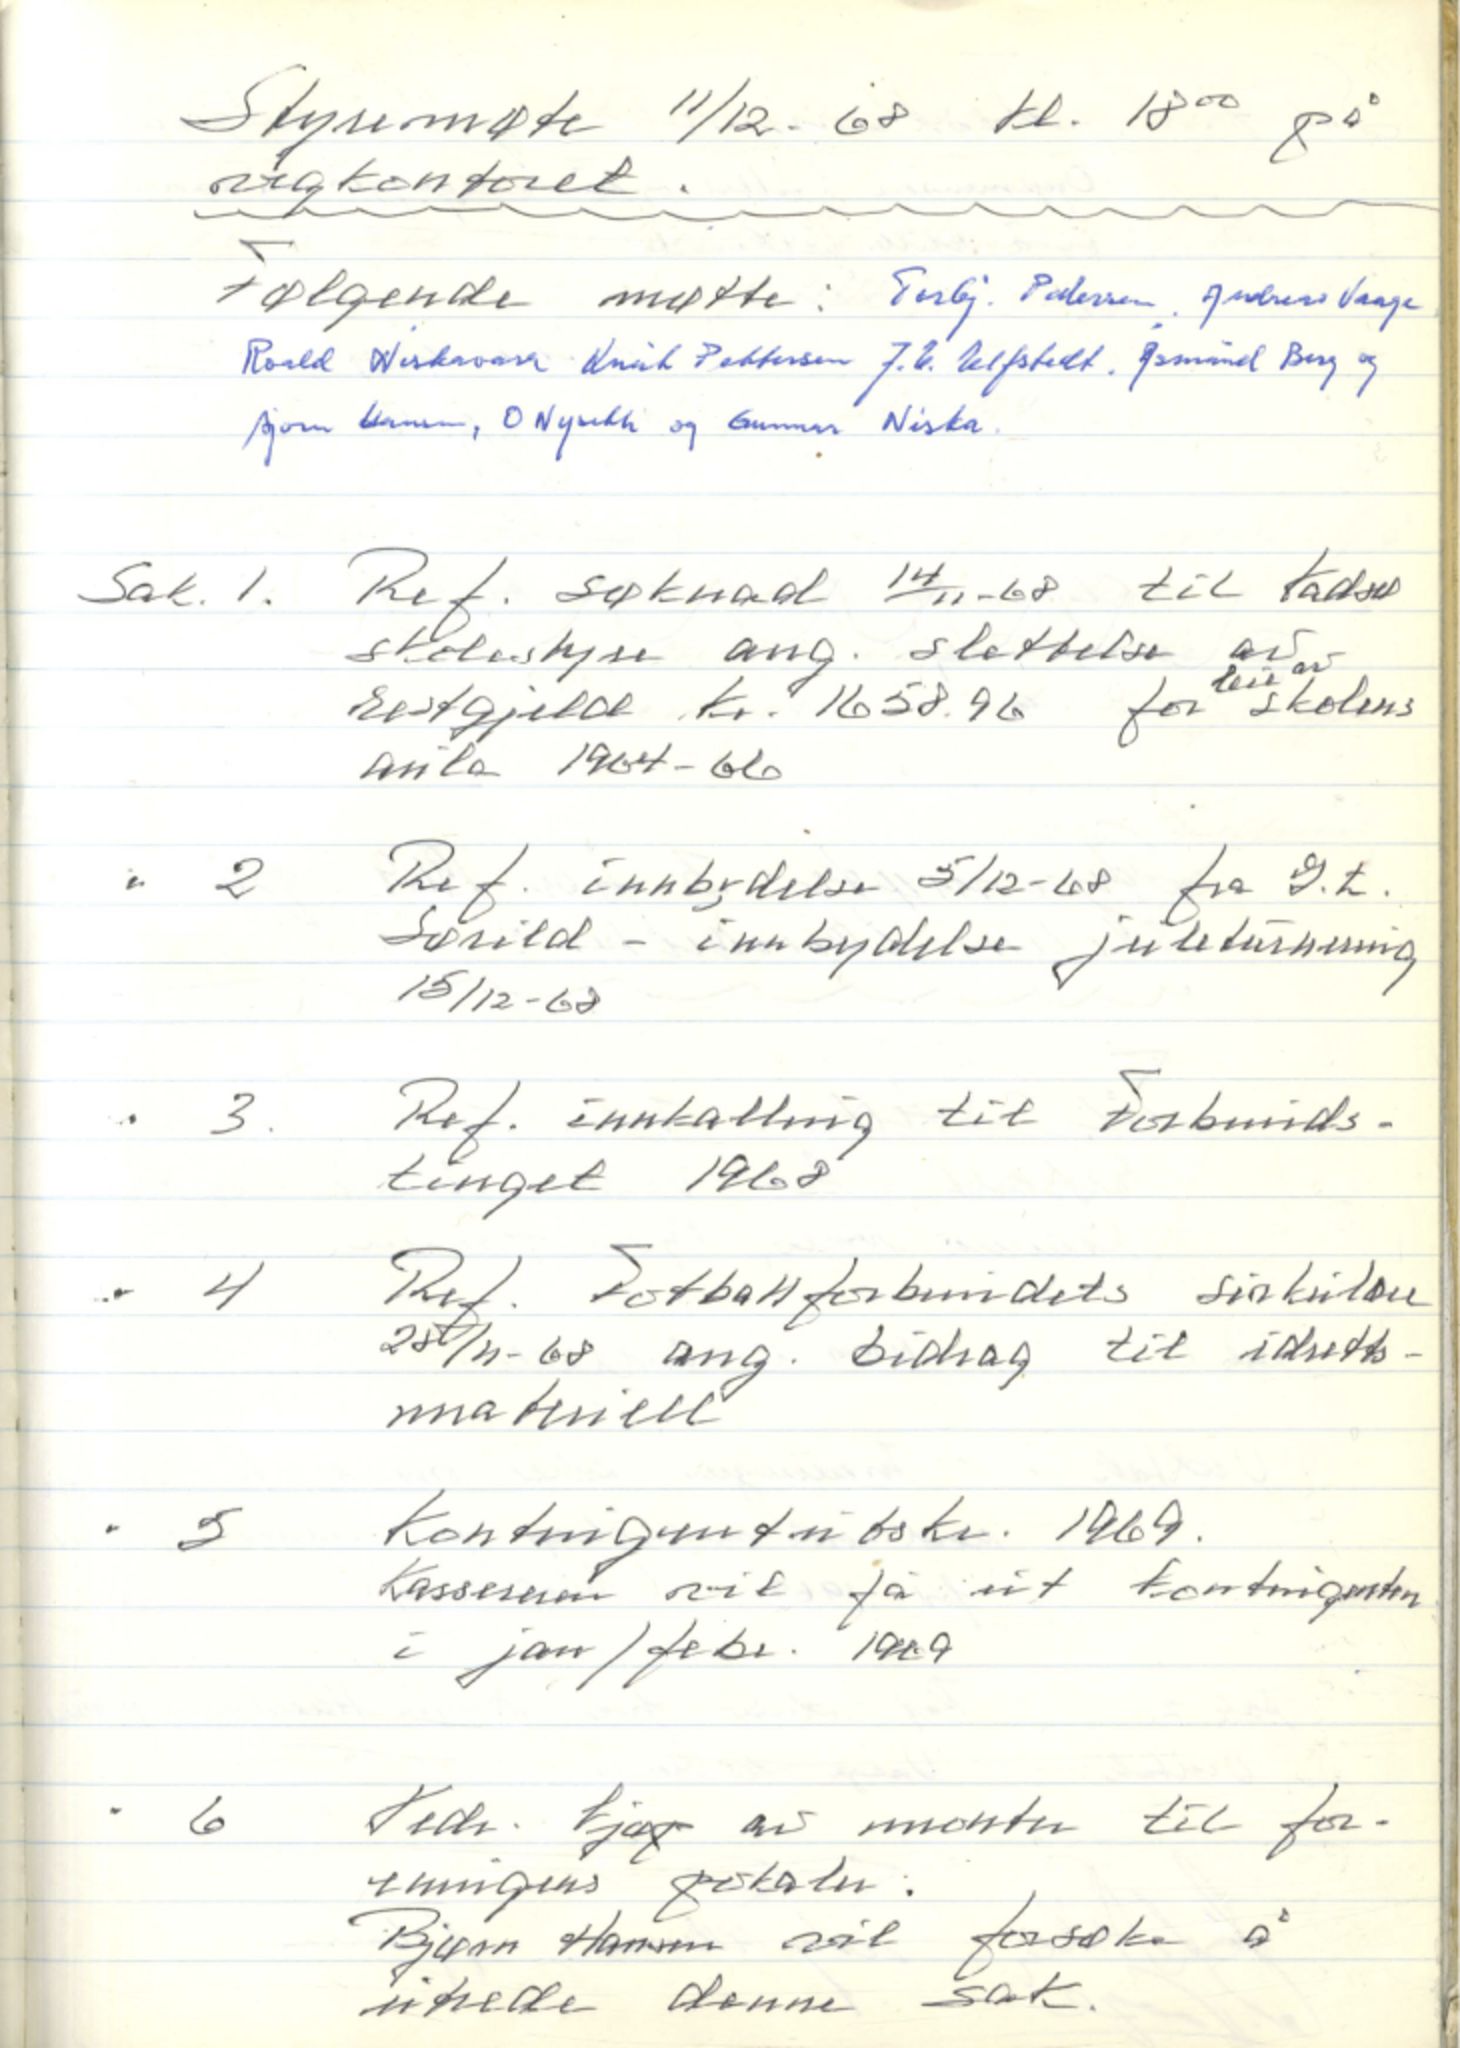 Styremøte 11/12-68 kl. 18⁰⁰ på
vegkontoret.
Følgende møtte: Torbj. Pedersen, Andreas Vaage
Roald Niskavaara Knut Pettersen J.U. Ulfstedt, Åsmund Berg og
Bjørn Hansen, O og Gunnar Niska.
Sak. 1. Ref. søknad 14/11-68 til Vadsø
skolestyre ang. slettelse av
restgjeld kr. 1658.96 for leie av skolens
aula 1964-66
" 2 Ref. innbydelse 5/12-68 fra I.L.
Sørild - innbydelse juleturnering
15/12-68
" 3. Ref. innkalling til Forbunds-
tinget 1968
" 4 Ref. Fotballforbundets sirkulære
28/11-68 ang. bidrag til idretts-
materiell
" 5 Kontingentutskr. 1969.
Kassereren vil få ut kontingenten
i jan/febr. 1969
" 6 Vedr. kjøp av monter til for-
eningens pokaler.
Bjørn Hansen vil forsøke å
utrede denne sak.